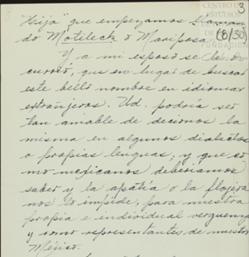 3
(8/50)
"Hija" que empezamos
do Mateleca o Mariposa.
Y a mi esposo se le o
currió, que en lugar de buscar
este bello nombre en idiomas
extranjeros. Ud. podría ser
tan amable de decirnos la
misma en algunos dialectos
o propias lenguas, y que co
mo mexicanos deberíamos
saber y la apatía o la flojera
nos lo impide, para nuestra
propia e individual vergüenza
y como representantes de nuestro
México.